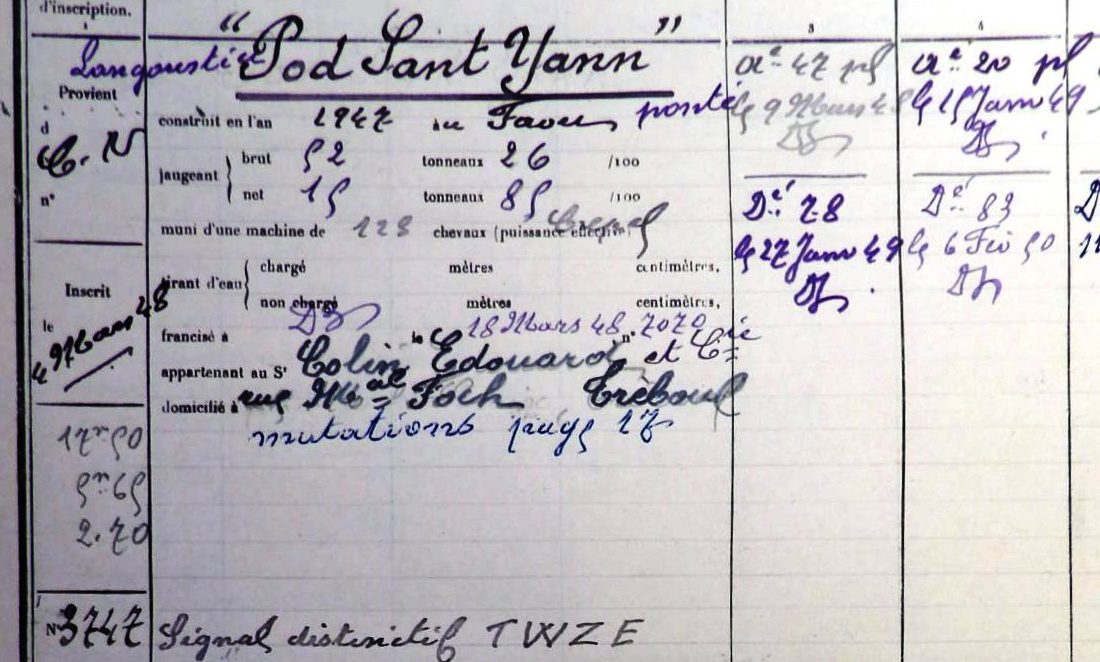 d'inscription.
1
3
4
Langoustier
" Pod Sant Yann "
Provient
d
C. N
n°
construit en l'an 1947 au Faou ponté
jaugeant
brut 52 tonneaux 26 /100
net 15 tonneaux 85 /100
muni d'une machine de 128 chevaux (puissance effective)
tirant d'eau
chargé mètres centimètres.
non chargé mètres centimètres,
Inscrit
le
4 Mars 48
francisé à Dz le 18 Mars 48 . n° 7070
appartenant au Sr Colin Edouard et Cie
domicilié à rue Mal Foch Tréboul
mutations page 17
17m50
5m65
2.70
N° 3747
Signal distinctif TWZE
ae 47 pl
le 9 Mars 48
Dz
Dé 28
le 27 Janv 49
Dz
ae 20 pl
le 15 Janv 49
Dz
Dé 83
le 6 Fév 50
Dz